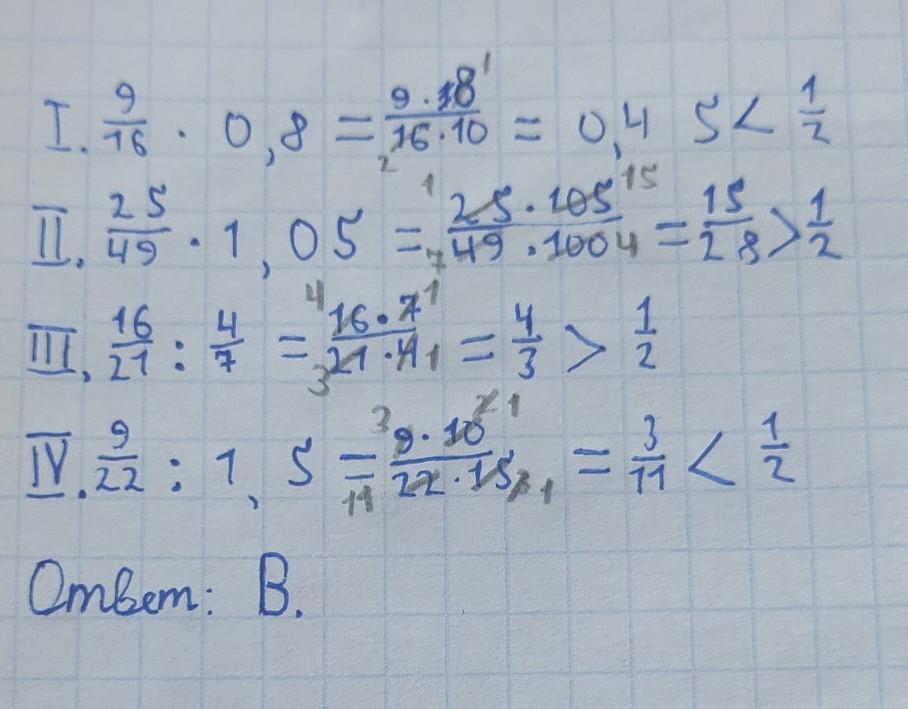 I. 9/16 · 0,8 = 9·18 1/16·10 2 = 0,4 5 < 1/2
II. 25/49 · 1,05 = 1 25·105 15/7 49·100 4 = 15/28 > 1/2
III. 16/21 : 4/7 = 4 16·7 1/3 21·4 1 = 4/3 > 1/2
IV. 9/22 : 1,5 = 3 9·10 2 1/11 22·15 3 1 = 3/11 < 1/2
Ответ: В.